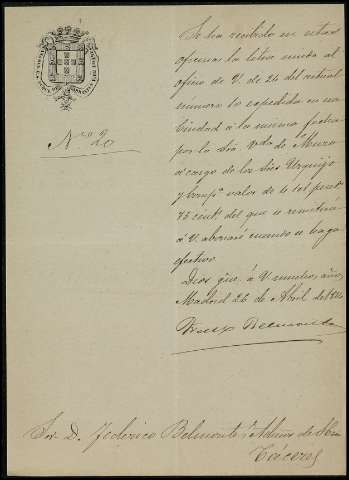 Nº 20
Se ha recibido en estas
oficinas la letra unida al
oficio de V. de 24 del actual
numero 10 expedida en esa
Ciudad á la misma fecha
por la Sra. Vda de Muro
á cargo de los Sres Urquijo
y Compª valor de 4 pest
75 cent del que se remitirá
á V. abonaré cuando se haga
efectivo
Dios gue. á V. muchos años
Madrid 26 de Abril de
Belmonte
Sor. D. Federico Belmonte Admor de
Cáceres